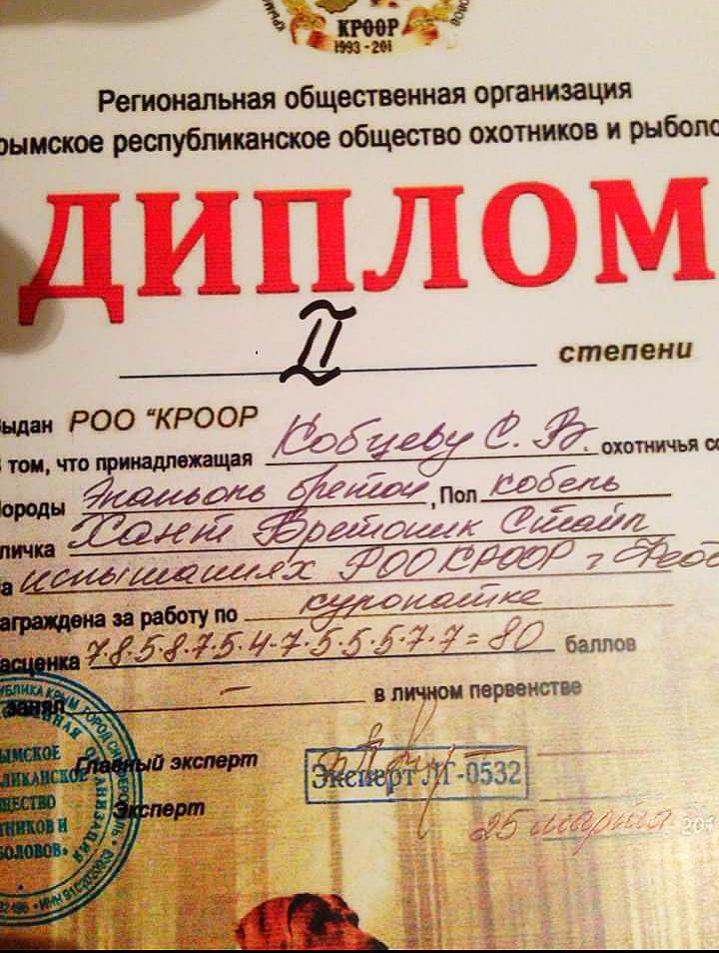 КРООР
1993-201
Региональная общественная организация
рымское республиканское общество охотников и рыболо
ДИПЛОМ
II степени
ыдан РОО "КРООР
том, что принадлежащая Кобцеву С. В. охотничья со
ороды Эпаньоль бретон, Пол кобель
личка Хант Бретоник Стайл
а испытаниях РОО КРООР г Феод
аграждена за работу по куропатке
асценка 7.8.5.8.7.5.4.7.5.5.5.7.7=80 баллов
занял – в личном первенстве
Главный эксперт
Эксперт ЛГ-0532
Эксперт
25 марта 201
УБЛИКА КРЫМ ГОРОД
ЫМСКОЕ
ЛИКАНСКОЕ
ЩЕСТВО
ТНИКОВ И
БОЛОВОВ